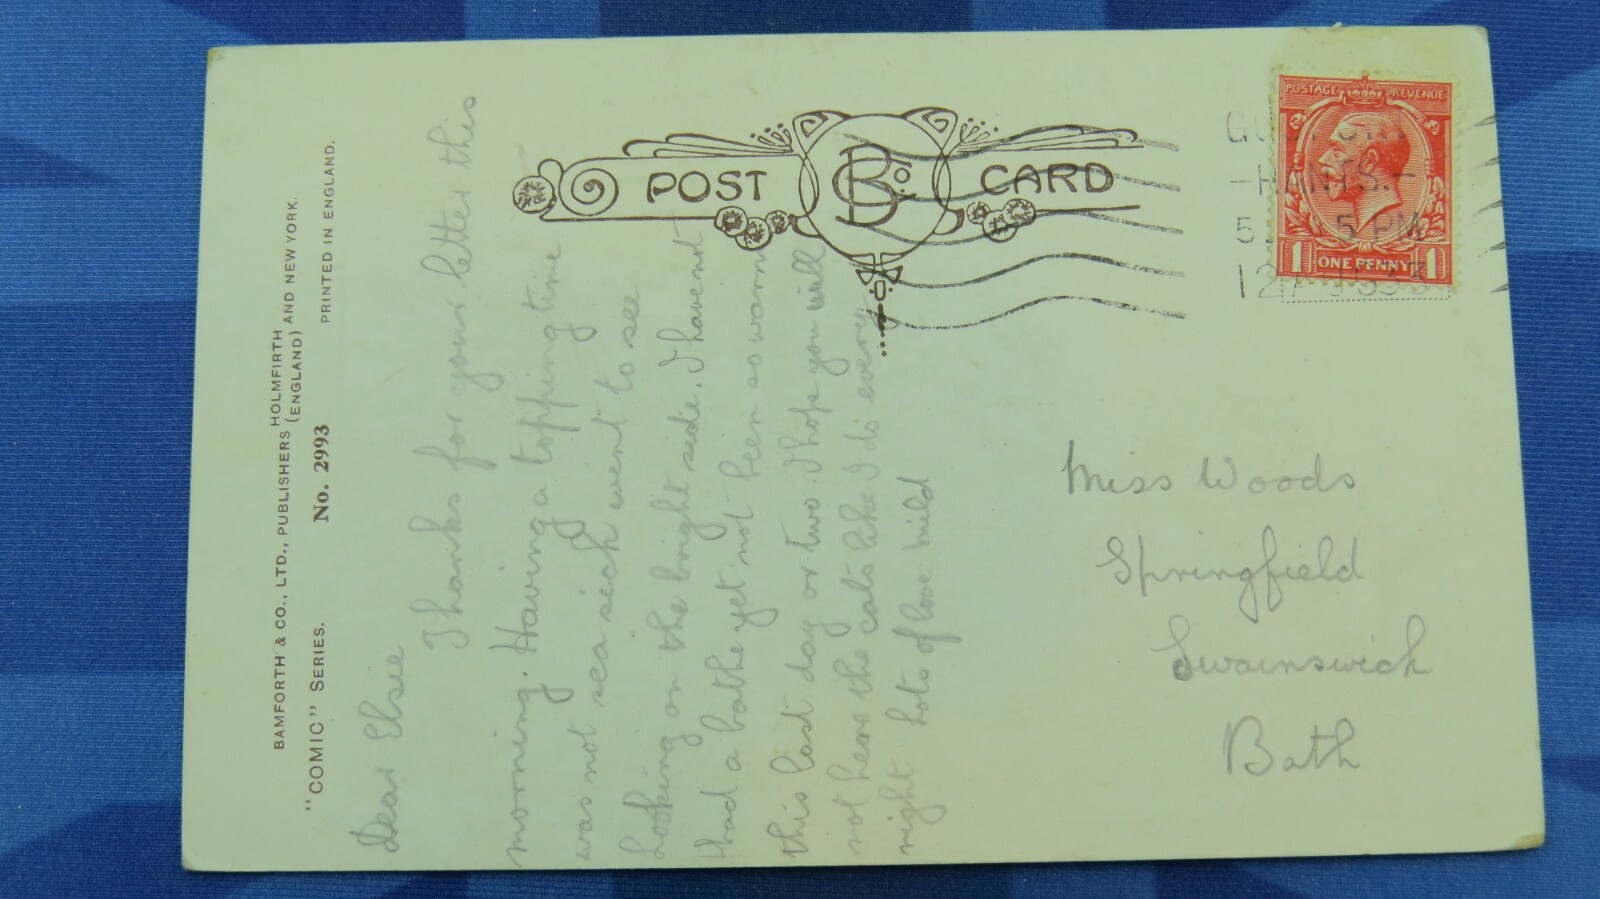 BAMFORTH & CO., LTD., PUBLISHERS HOLMFIRTH (ENGLAND) AND NEW YORK.
"COMIC" SERIES. No. 2993 PRINTED IN ENGLAND.
POST CARD
B Co.
HANTS.
5 PM
12
POSTAGE REVENUE
1 ONE PENNY 1
Dear Elsie
Thanks for your letter this
morning. Having a topping time
was not sea sick went to see
Looking on the bright side. I havent
had a bathe yet not been so warm
this last day or two. I hope you will
not hear the cats like I do every
night lots of love Mild
Miss Woods
Springfield
Swainswick
Bath